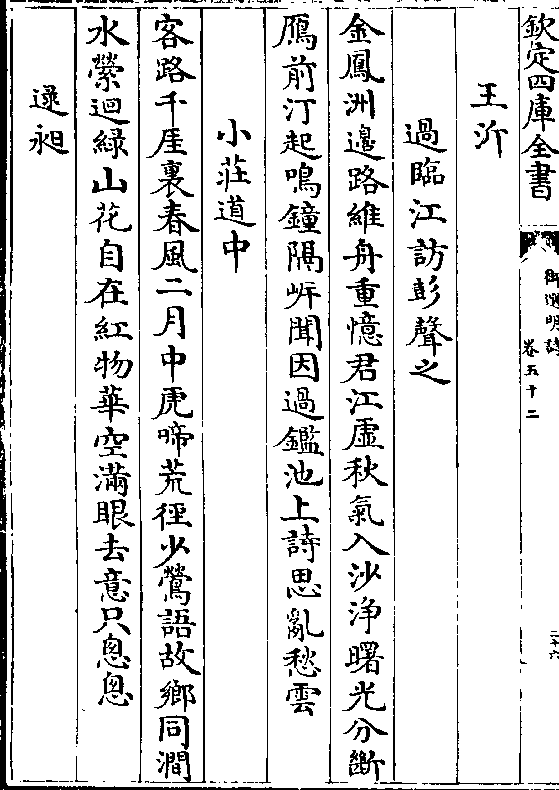 欽定四庫全書
御選明詩
卷五十二
二十六
王沂
過臨江訪彭聲之
金鳳洲邊路維舟重憶君江虛秋氣入沙浄曙光分斷
鴈前汀起鳴鐘隔岍聞因過鑑池上詩思亂愁雲
小莊道中
客路千厓裏春風二月中虎啼荒徑少鶯語故鄉同澗
水縈迴緑山花自在紅物華空滿眼去意只悤悤
逯昶